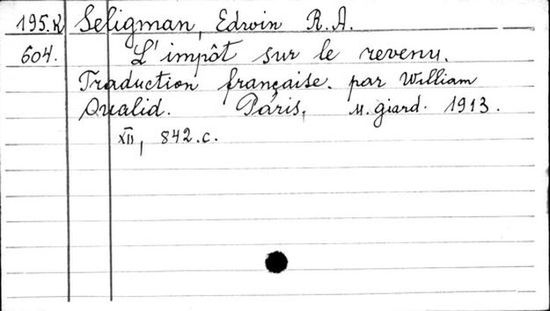 195.K Seligman, Edwin R.A.
604. L'impôt sur le revenu.
Traduction française. par William
Oualid. Páris, M. Giard. 1913.
XII, 842.c.